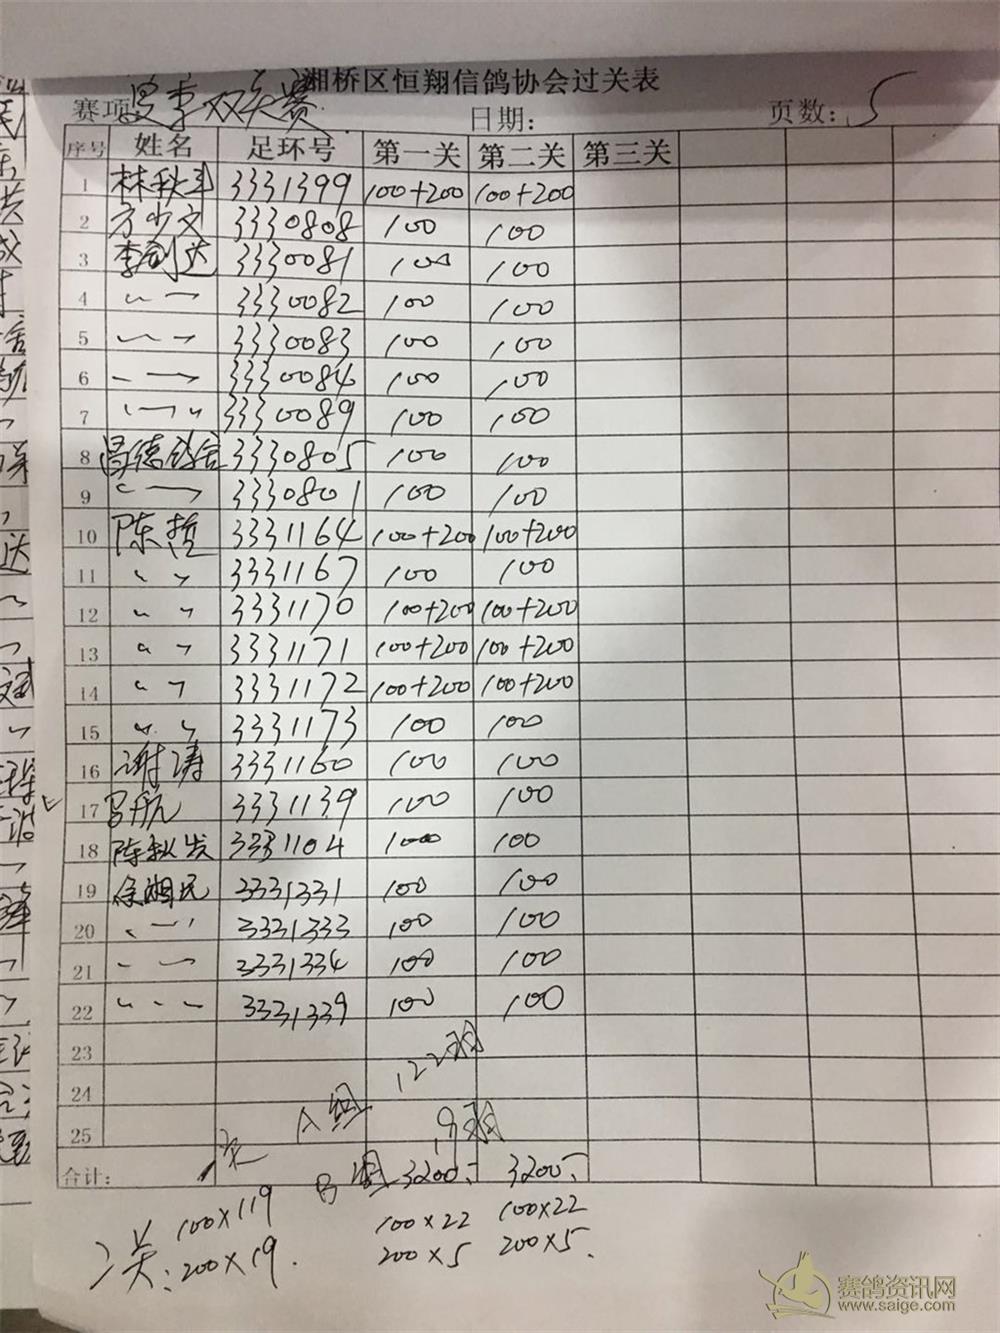 湘桥区恒翔信鸽协会过关表
赛项: 夏季双关赛 日期: 页数: 5
序号 姓名 足环号 第一关 第二关 第三关
1 林秋丰 3331399 100+200 100+200
2 方少文 3330808 100 100
3 李剑达 3330081 100 100
4 〃 一 3330082 100 100
5 〃 一 3330083 100 100
6 〃 一 3330084 100 100
7 〃 一 〃 3330089 100 100
8 昌德鸽舍 3330805 100 100
9 〃 一 3330801 100 100
10 陈哲 3331164 100+200 100+200
11 〃 〃 3331167 100 100
12 〃 〃 3331170 100+200 100+200
13 〃 〃 3331171 100+200 100+200
14 〃 〃 3331172 100+200 100+200
15 〃 〃 3331173 100 100
16 谢涛 3331160 100 100
17 航 3331139 100 100
18 陈秋发 3331104 100 100
19 徐湘民 3331331 100 100
20 〃 一 〃 3331333 100 100
21 〃 一 3331334 100 100
22 〃 〃 一 3331339 100 100
23
24
25
A组 122羽
B组 19羽
合计: 3200. 3200.
2关: 100×119 100×22 100×22
200×19. 200×5 200×5.
赛鸽资讯网
www.saige.com